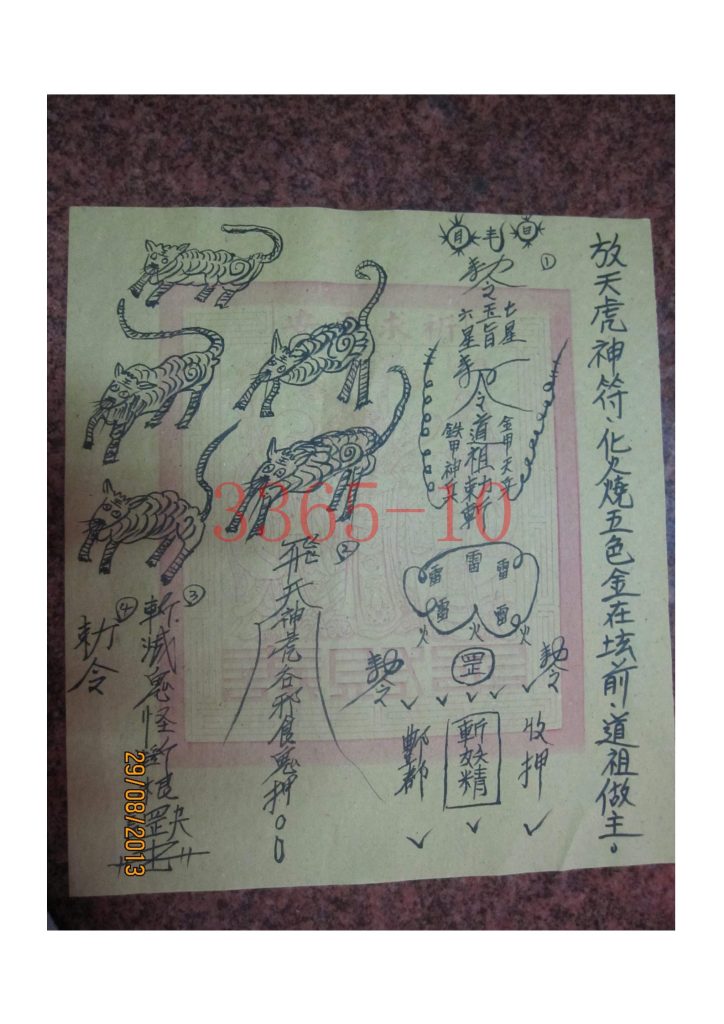 放天虎神符、化火燒五色金在坛前，道祖做主。
①
日 日
敕令玉旨
七星
六星
令道祖敕斬
金甲天兵
鉄甲神兵
雷 雷 雷
雷 雷
火 火 火
罡
敕令 敕令
收押
斬妖精
酆都
②
飛天神虎吞邪食鬼押。
③
斬滅鬼怪斷根罡
④
勅令
祈求
3365-10
29/08/2013